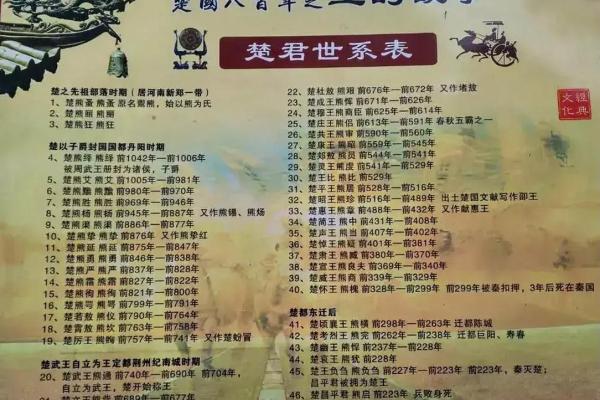 楚國八百年之
楚君世系表
經典
文化
楚之先祖部落时期（居河南新郑一带）
1、楚熊蚤 熊蚤 原名鬻熊，始以熊为氏
2、楚熊丽 熊丽
3、楚熊狂 熊狂
楚以子爵封国国都丹阳时期
4、楚熊绎 熊绎 前1042年—前1006年
被周武王册封为诸侯，子爵
5、楚熊艾 熊艾 前1005年—前981年
6、楚熊䵣 熊䵣 前980年—前970年
7、楚熊胜 熊胜 前969年—前946年
8、楚熊杨 熊杨 前945年—前887年 又作熊锡、熊炀
9、楚熊渠 熊渠 前886年—前877年
10、楚熊挚 熊挚 前876年 又作熊挚红
11、楚熊延 熊延 前875年—前847年
12、楚熊勇 熊勇 前846年—前838年
13、楚熊严 熊严 前837年—前828年
14、楚熊霜 熊霜 前827年—前822年
15、楚熊徇 熊徇 前821年—前800年
16、楚熊咢 熊咢 前799年—前791年
17、楚若敖 熊仪 前790年—前764年
18、楚霄敖 熊坎 前763年—前758年
19、楚厉王 熊眴 前757年—前741年 又作楚蚡冒
楚武王自立为王定都荆州纪南城时期
20、楚武王 熊通 前740年—前690年 前704年，
自立为武王，楚开始称王
21、楚文王 熊赀 前689年—前677年
22、楚杜敖 熊艰 前676年—前672年 又作堵敖
23、楚成王 熊恽 前671年—前626年
24、楚穆王 熊商臣 前625年—前614年
25、楚庄王 熊侣 前613年—前591年 春秋五霸之一
26、楚共王 熊审 前590年—前560年
27、楚康王 熊昭 前559年—前545年
28、楚郏敖 熊员 前544年—前541年
29、楚灵王 熊虔 前541年—前529年
30、楚王比 熊比 前529年
31、楚平王 熊居 前528年—前516年
32、楚昭王 熊珍 前516年—前489年 出土楚国文献写作卲王
33、楚惠王 熊章 前488年—前432年 又作献惠王
34、楚简王 熊中 前431年—前408年
35、楚声王 熊当 前407年—前402年
36、楚悼王 熊疑 前401年—前381年
37、楚肃王 熊臧 前380年—前370年
38、楚宣王 熊良夫 前369年—前340年
39、楚威王 熊商 前339年—前329年
40、楚怀王 熊槐 前328年—前299年 前299年被秦扣押，3年后死在秦国
楚都东迁后
41、楚顷襄王 熊横 前298年—前263年 迁都陈城
42、楚考烈王 熊完 前262年—前238年 迁都巨阳、寿春
43、楚幽王 熊悍 前237年—前228年
44、楚哀王 熊犹 前228年
45、楚王负刍 熊负刍 前227年—前223年 前223年，秦灭楚；
昌平君被拥为楚王
46、楚昌平君 熊启 前223年 兵败身死